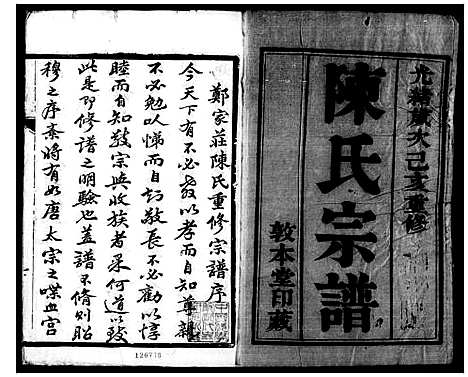 光緒歲次己亥重修
陳氏宗譜
敦本堂印藏
鄭家莊陳氏重修宗譜序
今天下有不必教以孝而自知尊親
不必勉以悌而自知敬長不必勸以惇
睦而自知敬宗與收族者采何道以致
此是即修譜之明驗也蓋譜不脩則昭
穆之序紊將有如唐太宗之喋血宮
126775